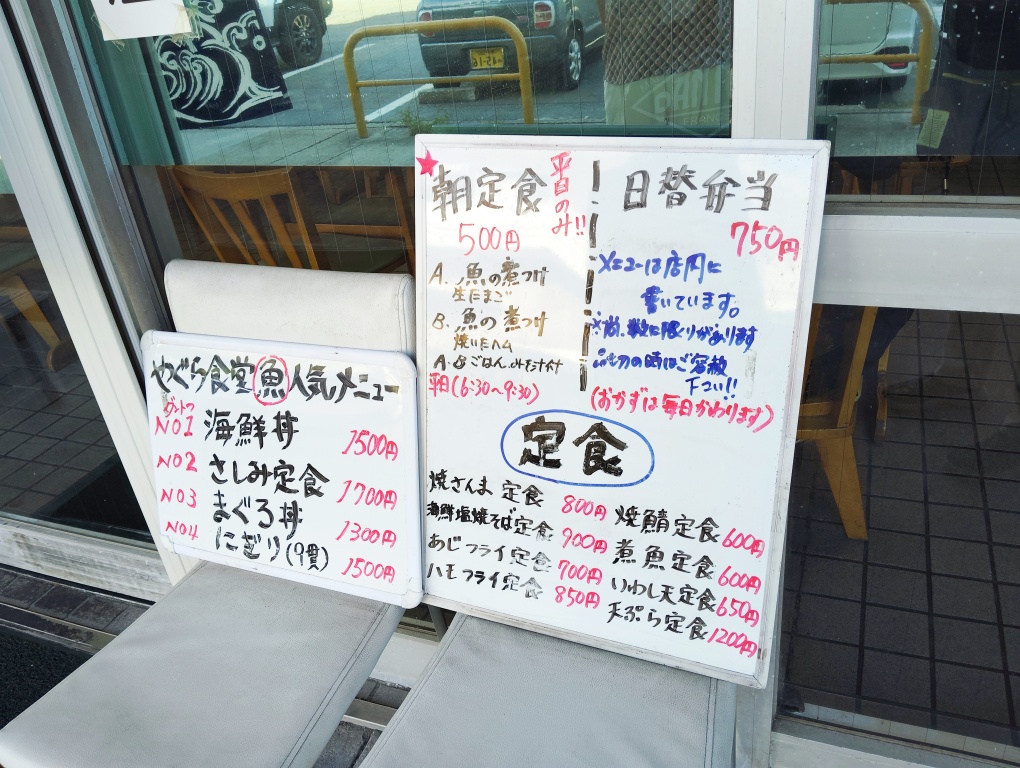 やぐら食堂魚人気メニュー
ダントツ
NO1 海鮮丼 1500円
NO2 さしみ定食 1700円
NO3 まぐろ丼 1300円
NO4 にぎり(9貫) 1500円
★朝定食 平日のみ!!
500円
A. 魚の煮つけ
生たまご
B. 魚の煮つけ
焼いたハム
A・B ごはん、みそ汁付
平日(6:30~9:30)
日替弁当
750円
メニューは店内に
書いています。
※尚、数に限りがあります
品切の時はご容赦
下さい!!
(おかずは毎日かわります)
定食
焼さんま定食 800円
海鮮塩焼そば定食 900円
あじフライ定食 700円
ハモフライ定食 850円
焼鯖定食 600円
煮魚定食 600円
いわし天定食 650円
天ぷら定食 1200円